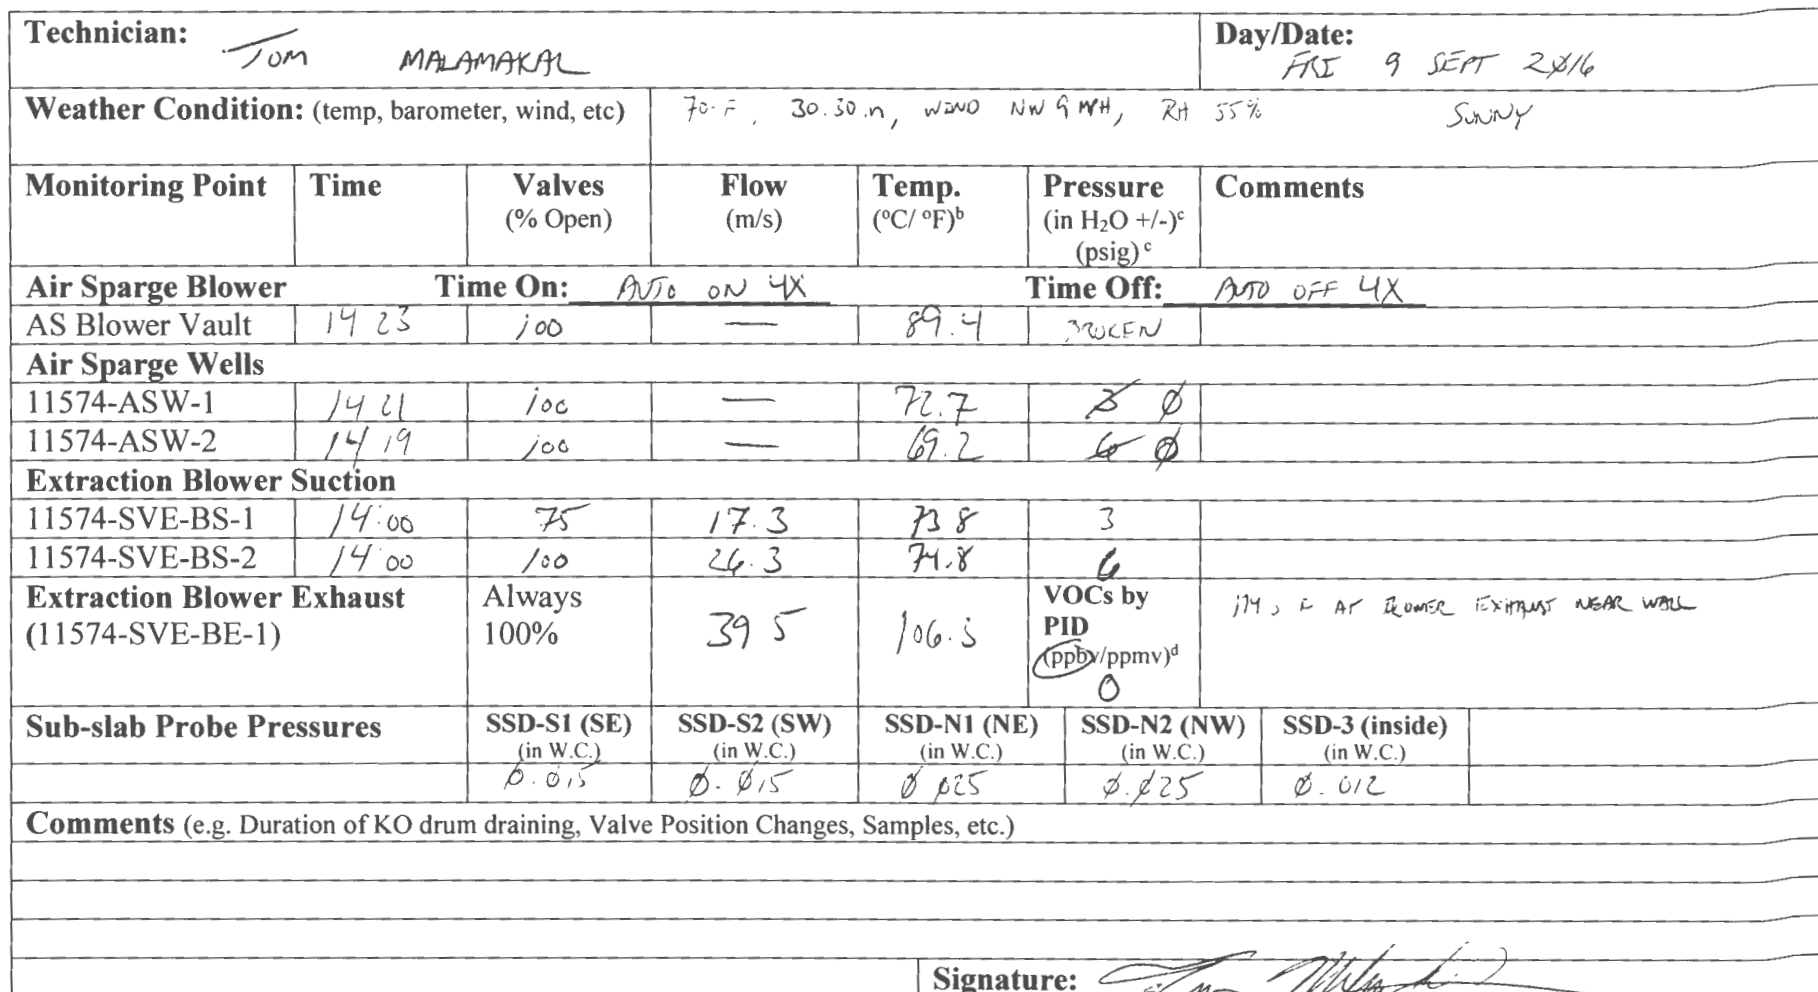 Technician: TOM MALAMAKAL Day/Date: FRI 9 SEPT 2016
Weather Condition: (temp, barometer, wind, etc) 70°F, 30.30 in, WIND NW 9 MPH, RH 55% SUNNY
Monitoring Point Time Valves Flow Temp. Pressure Comments
(% Open) (m/s) (°C/ °F)b (in H2O +/-)c
(psig) c
Air Sparge Blower Time On: AUTO ON 4X Time Off: AUTO OFF 4X
AS Blower Vault 1423 100 — 89.4 BROKEN
Air Sparge Wells
11574-ASW-1 1421 100 — 72.7 0
11574-ASW-2 1419 100 — 69.2 6 0
Extraction Blower Suction
11574-SVE-BS-1 14:00 75 17.3 73.8 3
11574-SVE-BS-2 14:00 100 26.3 74.8 6
Extraction Blower Exhaust Always VOCs by
(11574-SVE-BE-1) 100% 39.5 106.3 PID F AT BLOWER EXHAUST NEAR WALL
(ppbv/ppmv)d
0
Sub-slab Probe Pressures SSD-S1 (SE) SSD-S2 (SW) SSD-N1 (NE) SSD-N2 (NW) SSD-3 (inside)
(in W.C.) (in W.C.) (in W.C.) (in W.C.) (in W.C.)
0.015 0.015 0.025 0.025 0.012
Comments (e.g. Duration of KO drum draining, Valve Position Changes, Samples, etc.)
Signature: